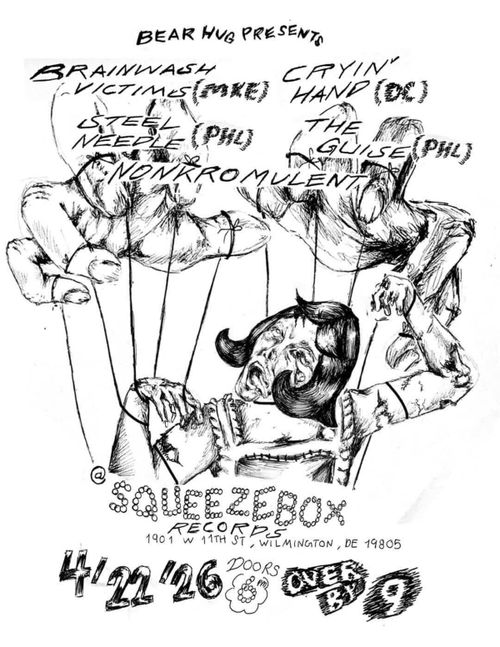 BEAR HUG PRESENTS
BRAINWASH
VICTIMS (MKE)
CRYIN'
HAND (DC)
STEEL
NEEDLE (PHL)
THE
GUISE (PHL)
NONKROMULENT
@
SQUEEZEBOX
RECORDS
1901 W 11TH ST, WILMINGTON, DE 19805
4/22/'26
DOORS
6PM
OVER
BY 9